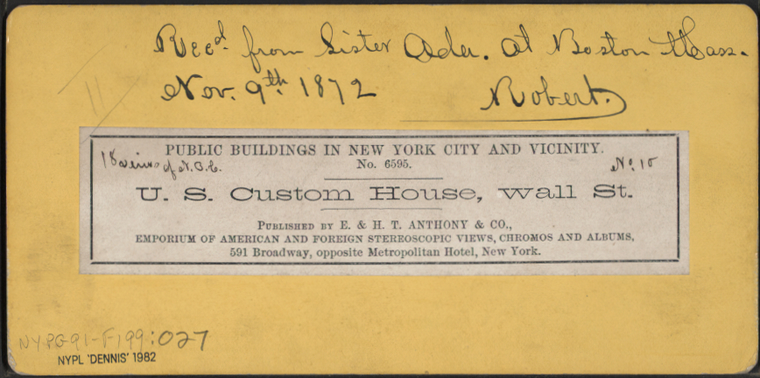 Recd. from Sister Ada. At Boston Mass.
Nov. 9th. 1872 Robert.
PUBLIC BUILDINGS IN NEW YORK CITY AND VICINITY.
18 views of N.Y.C. No. 6595. No. 10
U. S. Custom House, Wall St.
PUBLISHED BY E. & H. T. ANTHONY & CO.,
EMPORIUM OF AMERICAN AND FOREIGN STEREOSCOPIC VIEWS, CHROMOS AND ALBUMS,
591 Broadway, opposite Metropolitan Hotel, New York.
NYPG91-F199:027
NYPL 'DENNIS' 1982